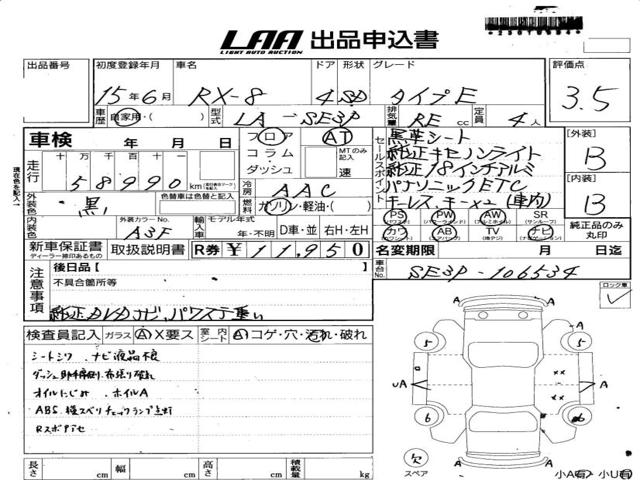 LAA 出品申込書
LIGHT AUTO AUCTION
出品番号 初度登録年月 車名 ドア 形状 グレード 評価点
15年6月 RX-8 4 SD タイプE 3.5
車歴 自家用・( ) 型式 LA-SE3P 排気量 RE cc 定員 4人
車検 年 月 日 フロア AT セールスポイント 黒革シート [外装]
走行 十 万 千 百 十 一 コラム MTのみ記入 純正キセノンライト B
58990 km ダッシュ 速 純正18インチアルミ
外装色 黒 色替車は色替と記入 冷房 AAC パナソニックETC [内装]
燃料 ガソリン・軽油・( ) キーレス、キー×2(車内) B
内装色 外装カラーNo. A3F 輸入車 モデル年式 年・不明 D車・並 右H・左H
PS PW AW SR 純正品のみ丸印
カワ AB TV ナビ
新車保証書 取扱説明書 R券 ¥11,950 名変期限 月 日迄
ディーラー捺印あるもの
現在色を記入
注意事項 後日品[ ] 車台No. SE3P-106534
不具合箇所等 ロック車
純正 ナビ、パワステ重い
検査員記入 ガラス (A)X要ス 室内 シート (A)コゲ・穴・汚れ・破れ
シートシワ、ナビ液晶
ダッシュ
オイルにじみ ホイルA
ABS、横スベリチェックランプ点灯
A A A
5 5
uA A
6 6
欠
スペア
長さ cm 幅 cm 高さ cm 積載量 kg 小A有 小U有